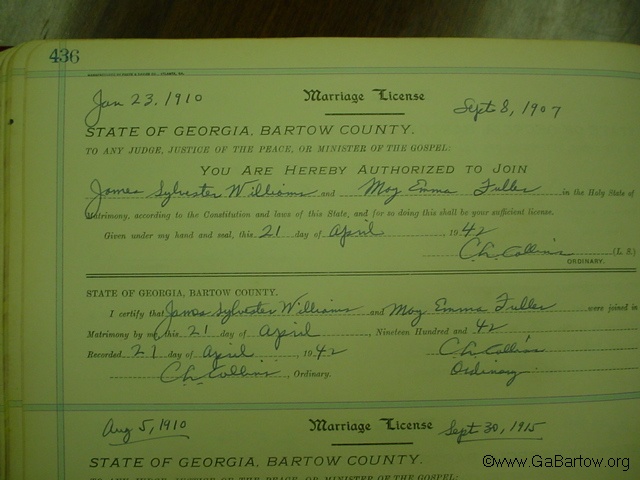 436
Jan 23, 1910 Marriage License Sept 8, 1907
STATE OF GEORGIA, BARTOW COUNTY.
TO ANY JUDGE, JUSTICE OF THE PEACE, OR MINISTER OF THE GOSPEL:
YOU ARE HEREBY AUTHORIZED TO JOIN
James Sylvester Williams and May Emma Fuller in the Holy State of
Matrimony, according to the Constitution and laws of this State, and for so doing this shall be your sufficient license.
Given under my hand and seal, this 21 day of April, 1942
C.h. Collins (L. S.)
ORDINARY.
STATE OF GEORGIA, BARTOW COUNTY.
I certify that James Sylvester Williams and May Emma Fuller were joined in
Matrimony by me this 21 day of April, Nineteen Hundred and 42
Recorded 21 day of April, 1942 C.h. Collins
C.h. Collins, Ordinary. Ordinary
Aug 5, 1910 Marriage License Sept 30, 1915
STATE OF GEORGIA, BARTOW COUNTY.
©www.GaBartow.org